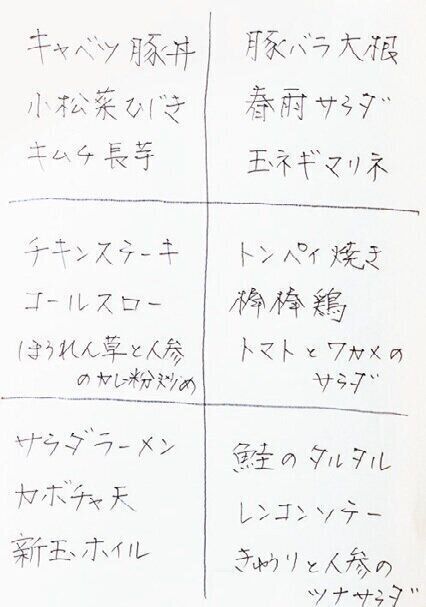 キャベツ豚丼
小松菜ひじき
キムチ長芋
豚バラ大根
春雨サラダ
玉ネギマリネ
チキンステーキ
コールスロー
ほうれん草と人参
のカレー粉炒め
トンペイ焼き
棒棒鶏
トマトとワカメの
サラダ
サラダラーメン
カボチャ天
新玉ホイル
鮭のタルタル
レンコンソテー
きゅうりと人参の
ツナサラダ